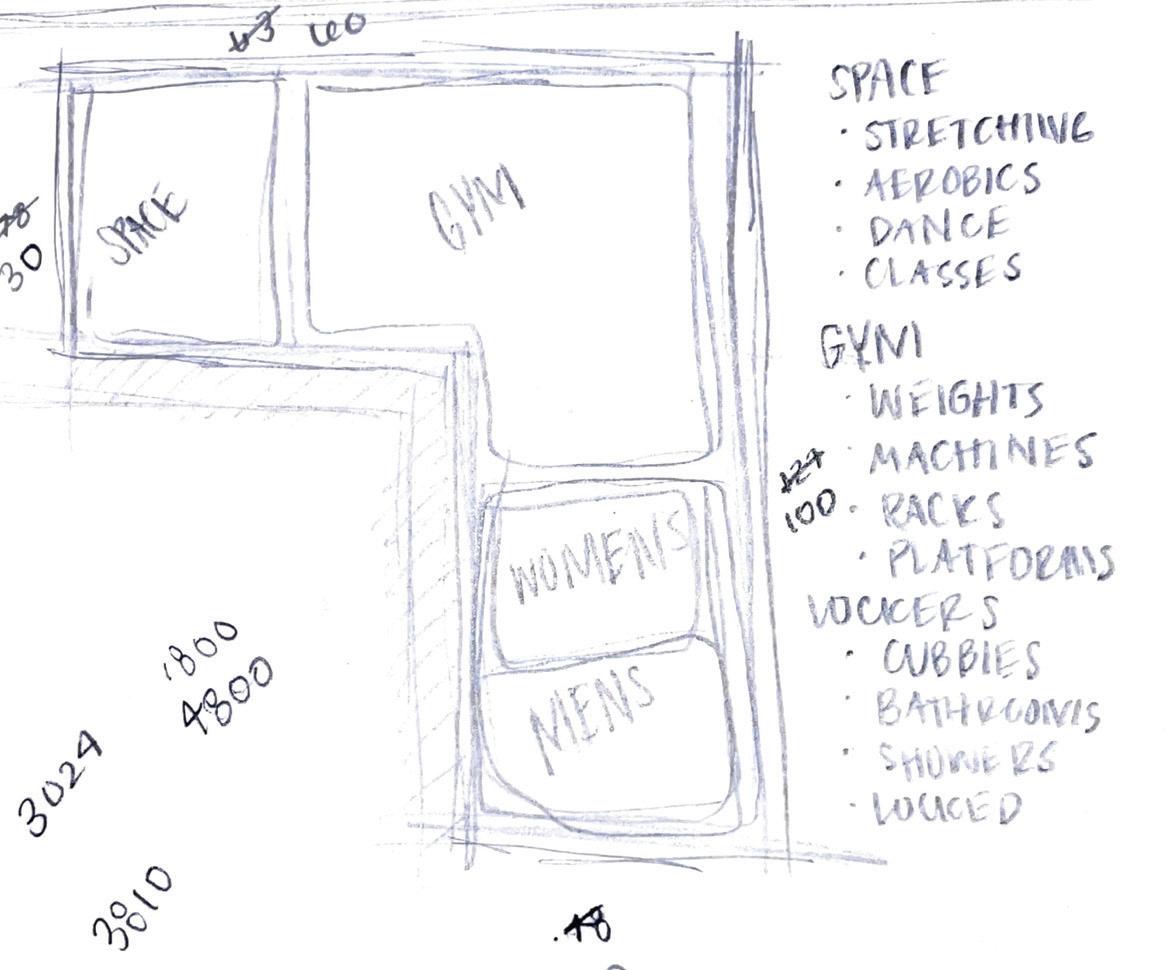 60
SPACE
· STRETCHING
· AEROBICS
· DANCE
· CLASSES
SPACE
GYM
30
GYM
· WEIGHTS
· MACHINES
· RACKS
· PLATFORMS
100
WOMENS
LOCKERS
· CUBBIES
· BATHROOMS
· SHOWERS
· LOCKED
MENS
1800
4800
3024
3810
48